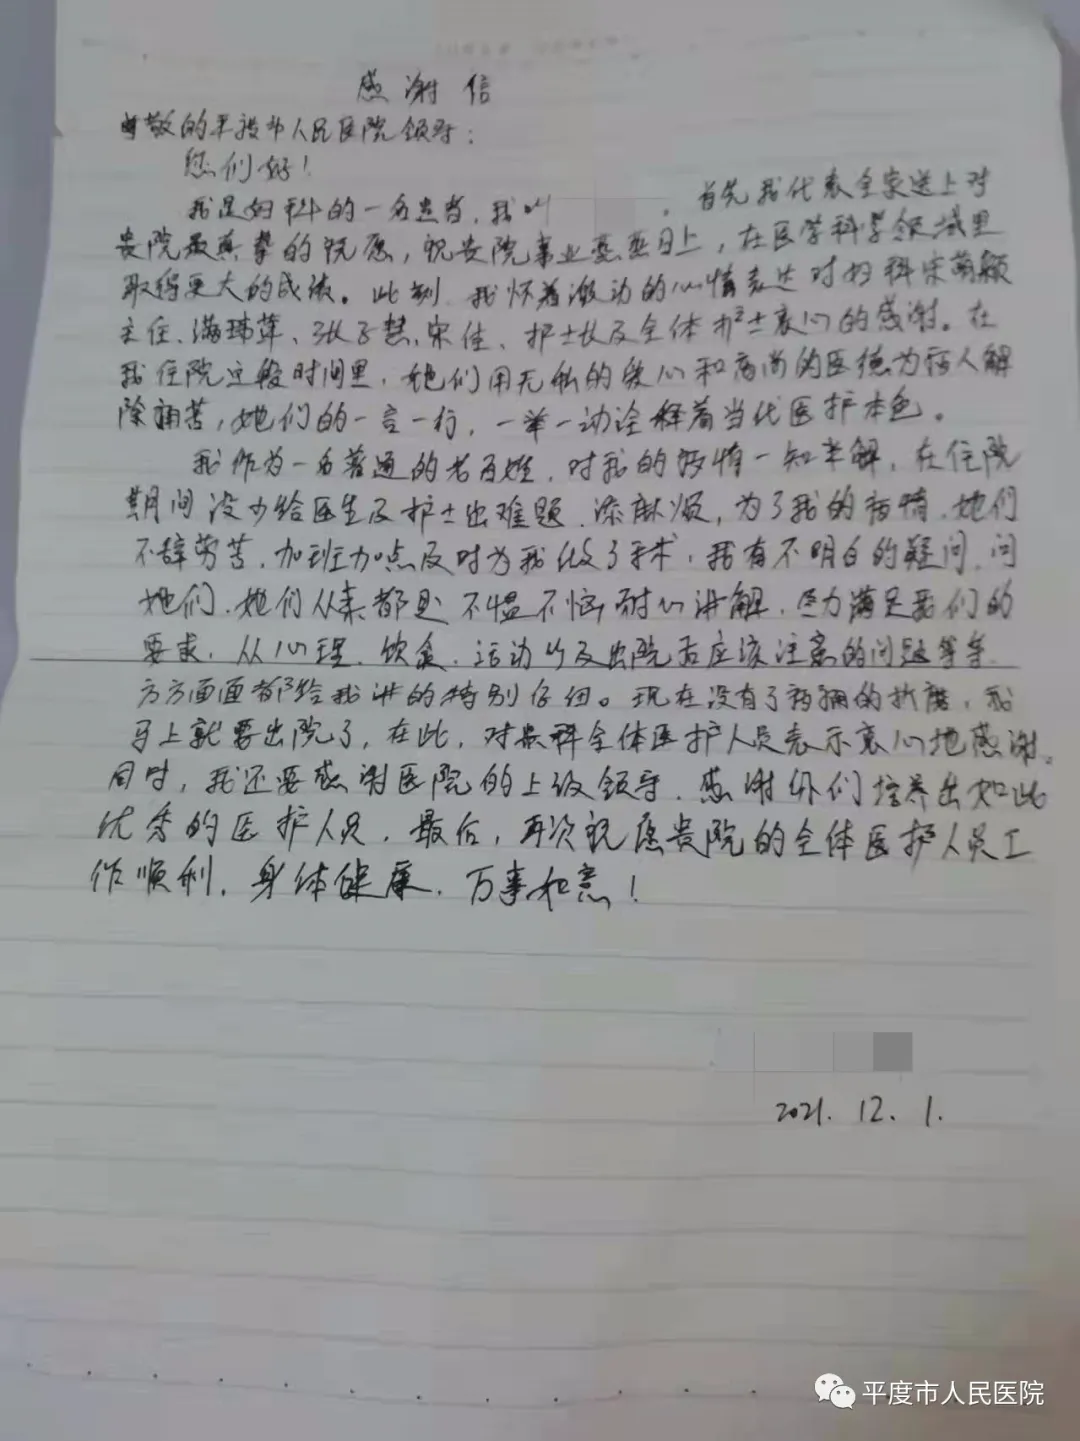 感谢信
尊敬的平度市人民医院领导：
您们好！
我是妇科的一名患者，我叫 ，首先我代表全家送上对
贵院最真挚的祝愿，祝贵院事业蒸蒸日上，在医学科学领域里
取得更大的成绩。此刻，我怀着激动的心情表达对妇科宋菊颖
主任、张子慧、宋佳、护士长及全体护士衷心的感谢。在
我住院这段时间里，她们用无私的爱心和高尚的医德为病人解
除痛苦，她们的一言一行，一举一动诠释着当代医护本色。
我作为一名普通的老百姓，对我的病情一知半解，在住院
期间没少给医生及护士出难题、添麻烦，为了我的病情，她们
不辞劳苦，加班加点及时为我做了手术，我有不明白的疑问，问
她们，她们从来都是不愠不恼耐心讲解，尽力满足我们的
要求，从心理、饮食、运动以及出院后应该注意的问题等等
方方面面都给我讲的特别仔细。现在没有了病痛的折磨，我
马上就要出院了，在此，对贵科全体医护人员表示衷心地感谢。
同时，我还要感谢医院的上级领导，感谢你们培养出如此
优秀的医护人员，最后，再次祝愿贵院的全体医护人员工
作顺利，身体健康，万事如意！
2021.12.1.
平度市人民医院